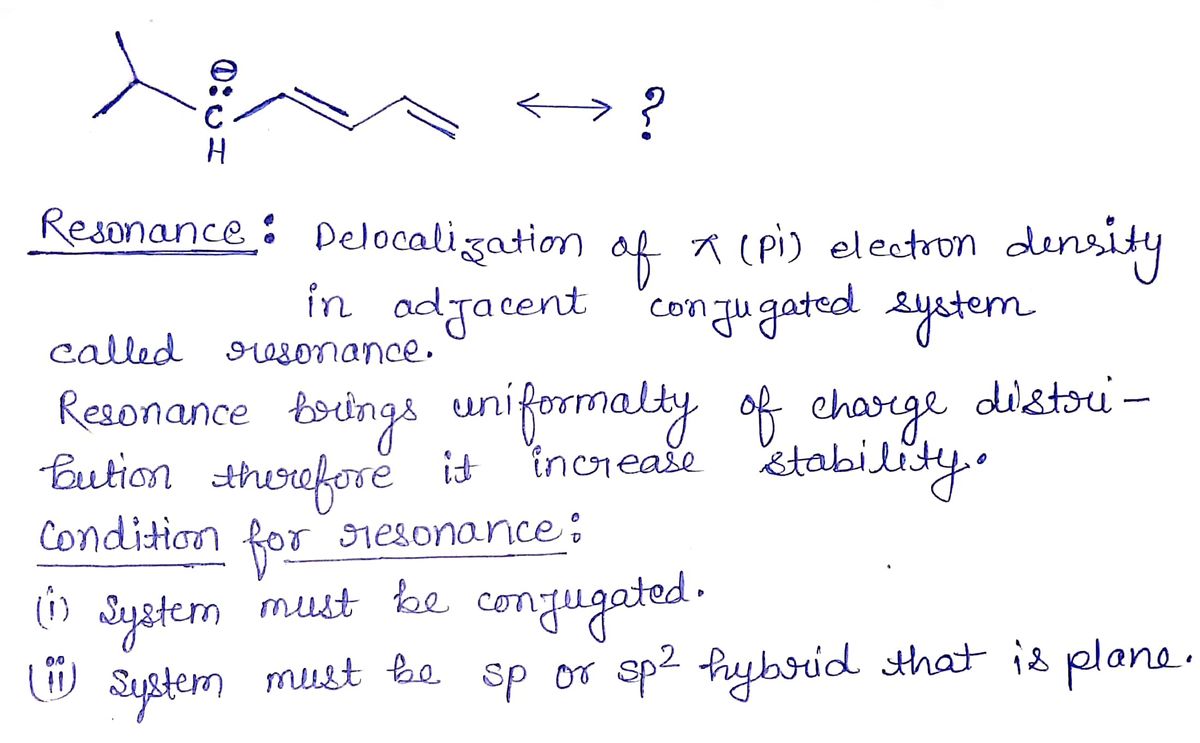 ⊖
··
C
H
⟷ ?
Resonance : Delocalization of π (pi) electron density
in adjacent conjugated system
called resonance.
Resonance brings uniformalty of charge distri-
bution therefore it increase stability.
Condition for resonance :
(i) System must be conjugated.
(ii) System must be sp or sp² hybrid that is plane.